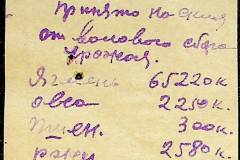 принято на склад
от валового сбора
урожая.
Ячмень 65220 к.
овса 2250 к.
пшен. 300 к.
ржи 2580 к.